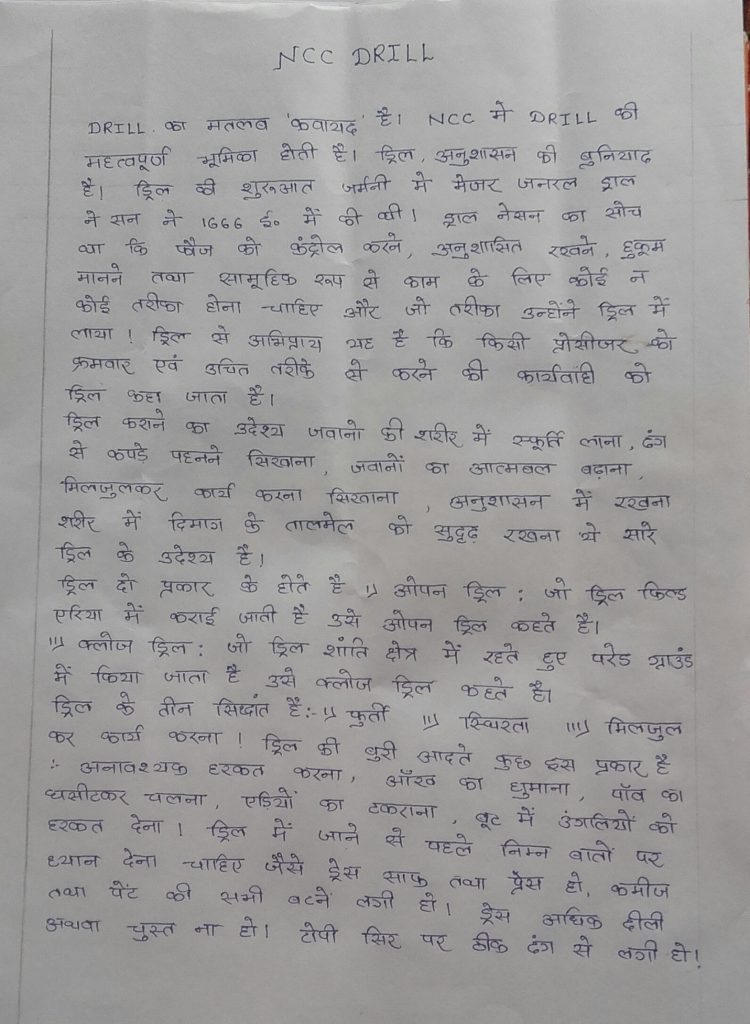 NCC DRILL
DRILL. का मतलब 'कवायद' है। NCC मे DRILL की
महत्वपूर्ण भूमिका होती है। ड्रिल, अनुशासन की बुनियाद
है। ड्रिल की शुरुआत जर्मनी मे मेजर जनरल ड्राल
ने सन ने 1666 ई० में की थी। ड्राल नेसन का सोच
था कि फौज को कंट्रोल करने, अनुशासित रखने, हुकूम
मानने तथा सामूहिक रूप से काम के लिए कोई न
कोई तरीका होना चाहिए और जो तरीका उन्होंने ड्रिल में
लाया! ड्रिल से अभिप्राय यह है कि किसी प्रोसीजर को
क्रमवार एवं उचित तरीके से करने की कार्यवाही को
ड्रिल कहा जाता है।
ड्रिल कराने का उदेश्य जवानो की शरीर में स्फूर्ति लाना, ढंग
से कपड़े पहनने सिखाना, जवानों का आत्मबल बढ़ाना,
मिलजुलकर कार्य करना सिखाना , अनुशासन में रखना
शरीर में दिमाग के तालमेल को सुदृढ़ रखना ये सारे
ड्रिल के उदेश्य है।
ड्रिल दो प्रकार के होते है i) ओपन ड्रिल : जो ड्रिल फिल्ड
एरिया में कराई जाती है उसे ओपन ड्रिल कहते है।
ii) क्लोज ड्रिल : जो ड्रिल शांति क्षेत्र में रहते हुए परेड ग्राउंड
में किया जाता है उसे क्लोज ड्रिल कहते है।
ड्रिल के तीन सिद्धांत हैः- i) फुर्ती ii) स्थिरता iii) मिलजुल
कर कार्य करना! ड्रिल की बुरी आदते कुछ इस प्रकार है
:- अनावश्यक हरकत करना, आँख का घुमाना, पॉव का
घसीटकर चलना, एड़ियों का टकराना, बूट में उंगलियों को
हरकत देना। ड्रिल में जाने से पहले निम्न बातों पर
ध्यान देना चाहिए जैसे ड्रेस साफ तथा प्रेस हो, कमीज
तथा पेंट की सभी बटनें लगी हो। ड्रेस अधिक ढीली
अथवा चुस्त ना हो। टोपी सिर पर ठीक ढंग से लगी हो!